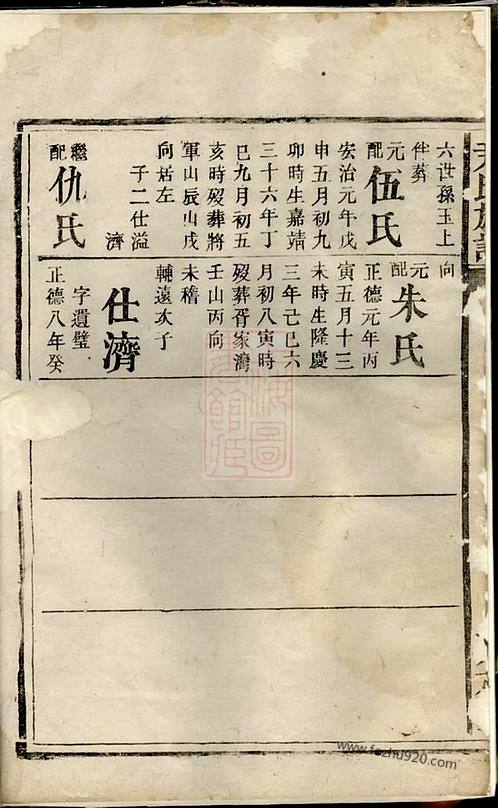 氏族譜
六世孫玉上
伴葬
元配伍氏
安治元年戊
申五月初九
卯時生嘉靖
三十六年丁
巳九月初五
亥時歿葬將
軍山辰山戌
向居左
子二仕溢
濟
繼配仇氏
向
元配朱氏
正德元年丙
寅五月十三
未時生隆慶
三年己巳六
月初八寅時
歿葬胥家灣
壬山丙向
未稽
輔遠次子
仕濟
字遺璧
正德八年癸
海圖
館藏
www.fozhu920.com